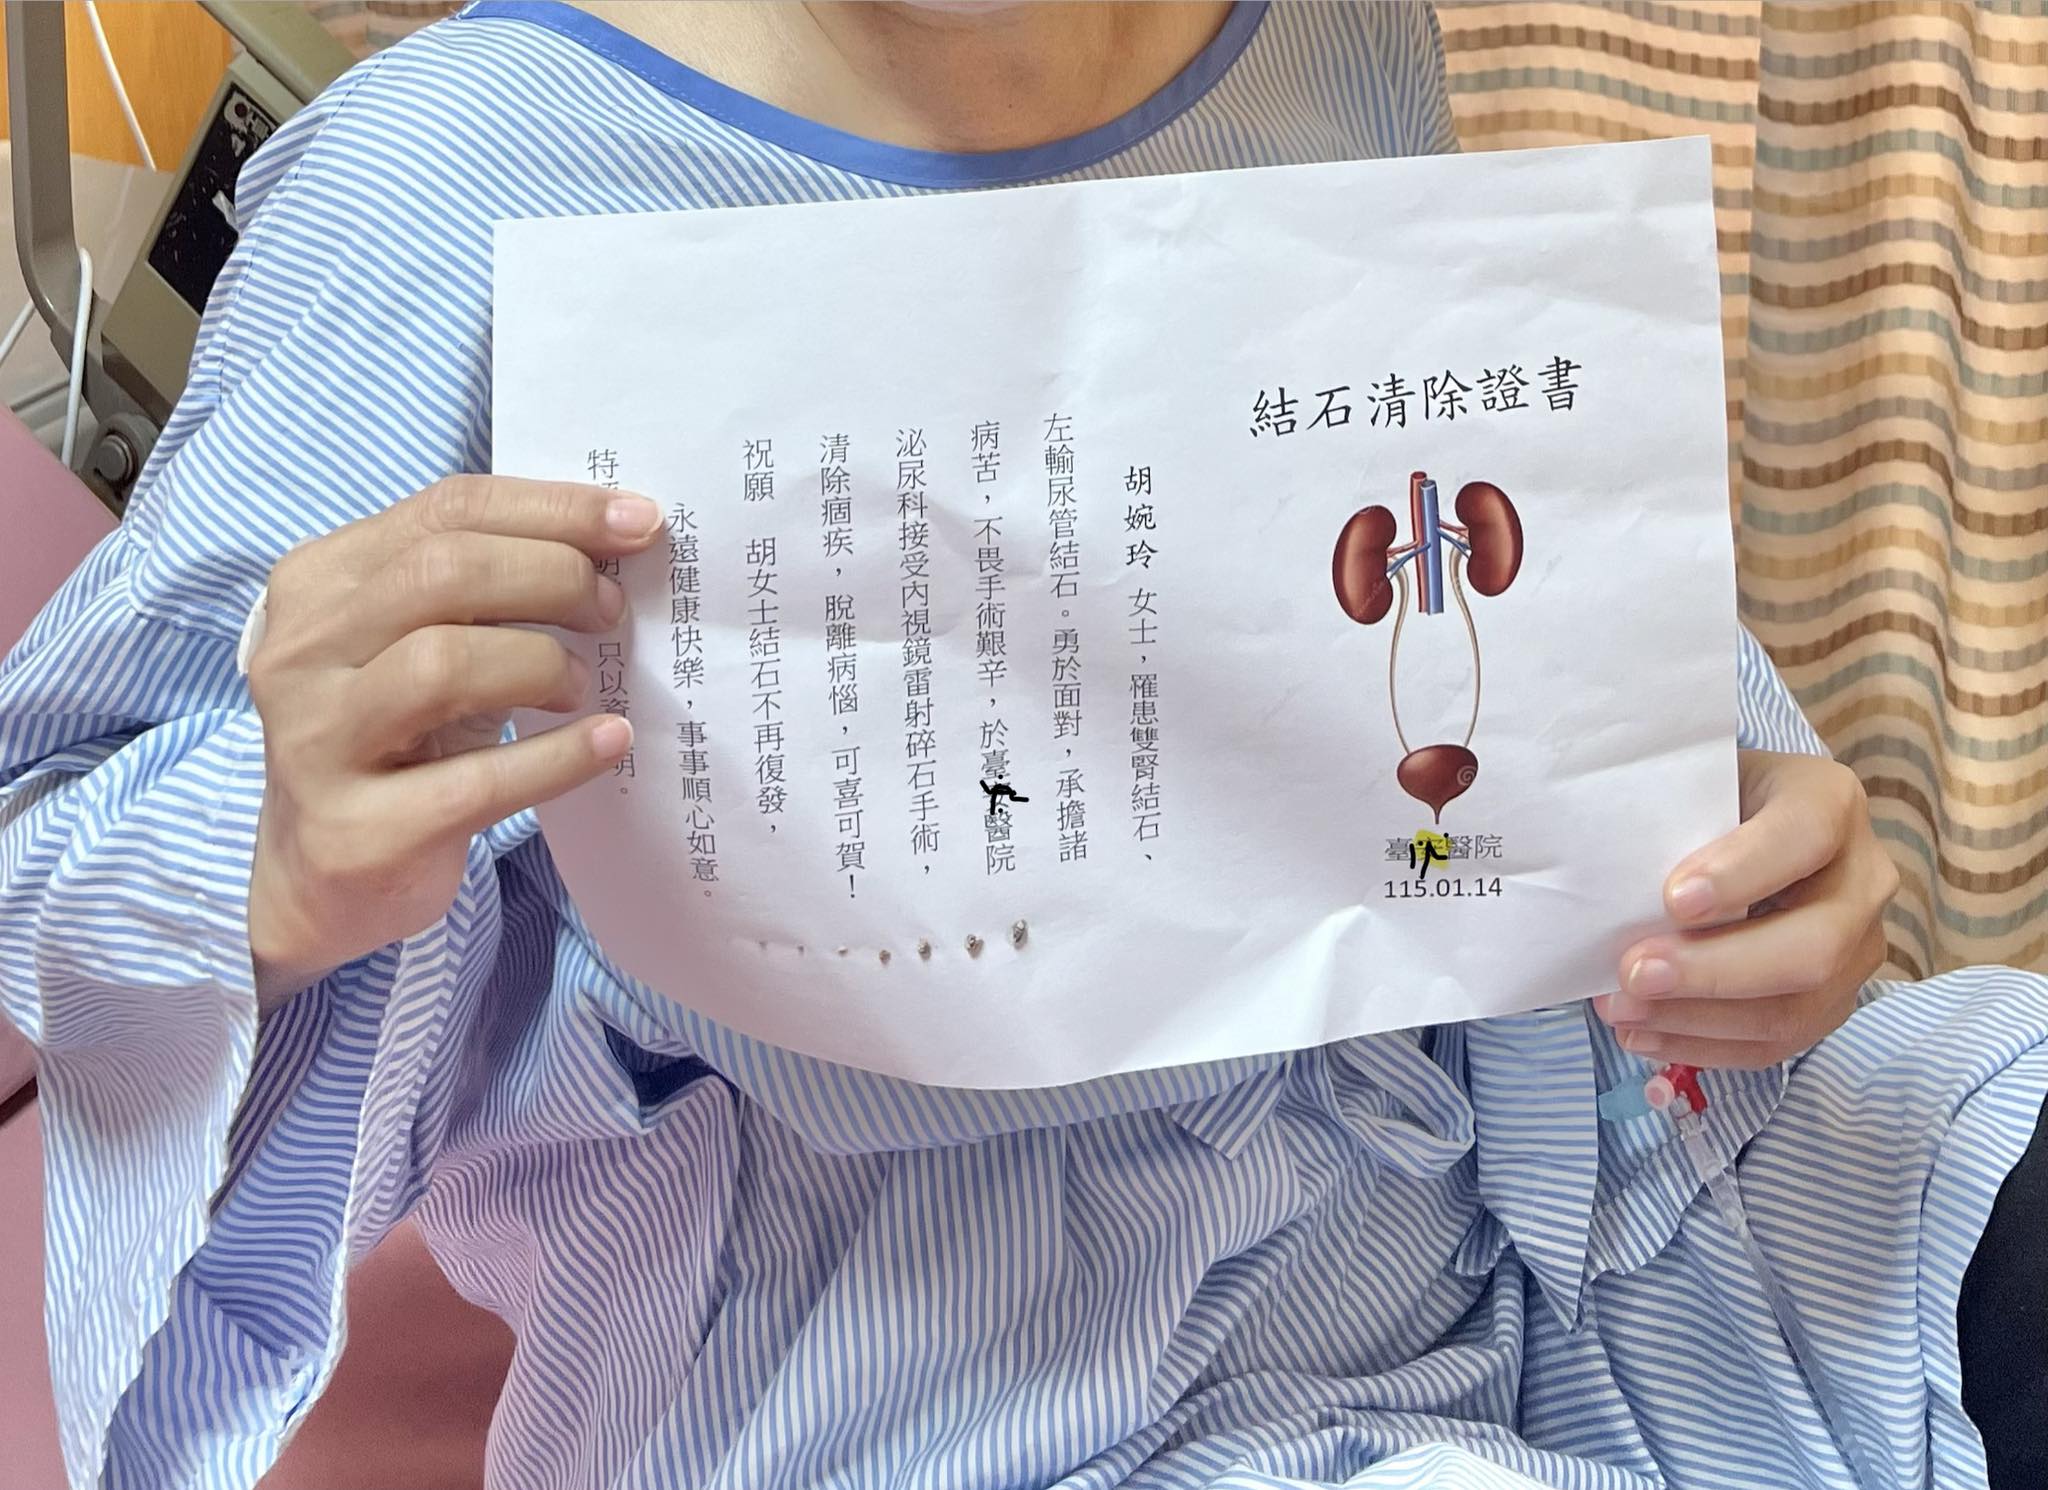 結石清除證書
臺醫院
115.01.14
胡婉玲 女士，罹患雙腎結石、
左輸尿管結石。勇於面對，承擔諸
病苦，不畏手術艱辛，於臺醫院
泌尿科接受內視鏡雷射碎石手術，
清除痼疾，脫離病惱，可喜可賀！
祝願 胡女士結石不再復發，
永遠健康快樂，事事順心如意。
特 只以資 明。